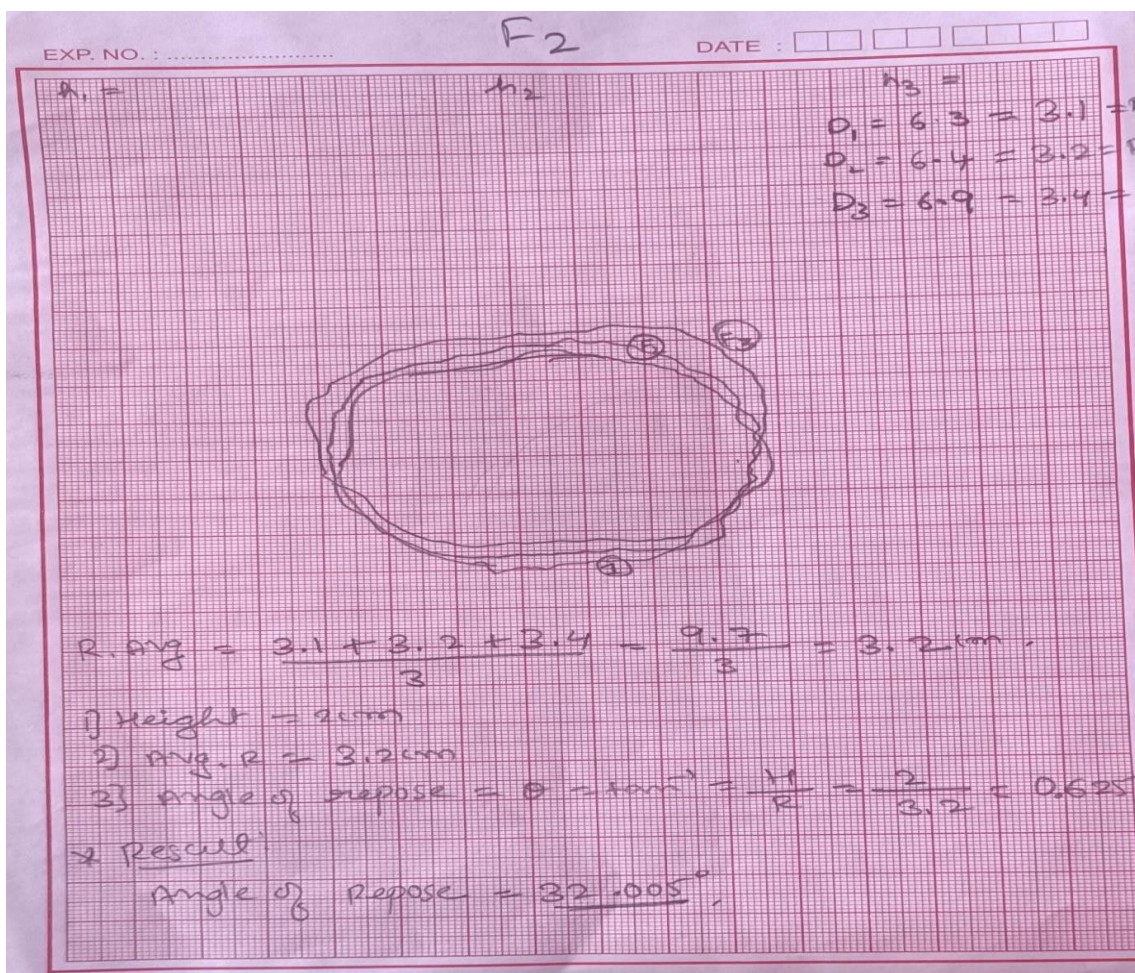 F2
EXP. NO. : ............................ DATE :
h1 = h2 h3 =
D1 = 6.3 = 3.1 =
D2 = 6.4 = 3.2 =
D3 = 6.9 = 3.4 =
R.Avg = 3.1 + 3.2 + 3.4 / 3 = 9.7 / 3 = 3.2 cm.
1) Height = 2cm
2) Avg. R = 3.2cm
3) Angle of repose = θ = tan⁻¹ = H / R = 2 / 3.2 = 0.625
* Result
Angle of Repose = 32.005°.